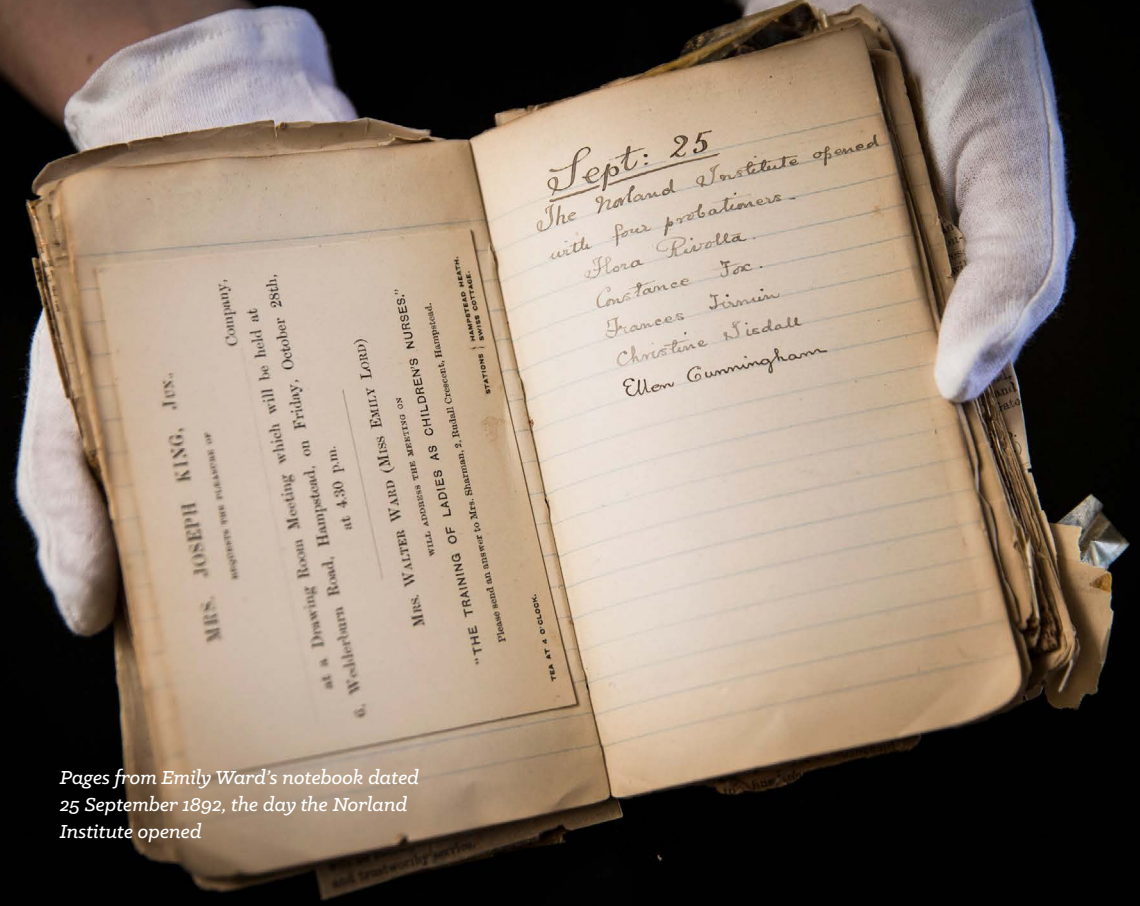 MRS. JOSEPH KING, JUN.,
REQUESTS THE PLEASURE OF
Company,
at a Drawing Room Meeting which will be held at
6, Wedderburn Road, Hampstead, on Friday, October 28th,
at 4.30 p.m.
MRS. WALTER WARD (MISS EMILY LORD)
WILL ADDRESS THE MEETING ON
"THE TRAINING OF LADIES AS CHILDREN'S NURSES."
Please send an answer to Mrs. Sharman, 2, Rudall Crescent, Hampstead.
STATIONS HAMPSTEAD HEATH.
SWISS COTTAGE.
TEA AT 4 O'CLOCK.
Sept: 25
The Norland Institute opened
with four probationers.
Flora Rivolta.
Constance Fox.
Frances Firmin
Christine Tisdall
Ellen Cunningham
and trustworthy service,
Pages from Emily Ward's notebook dated
25 September 1892, the day the Norland
Institute opened